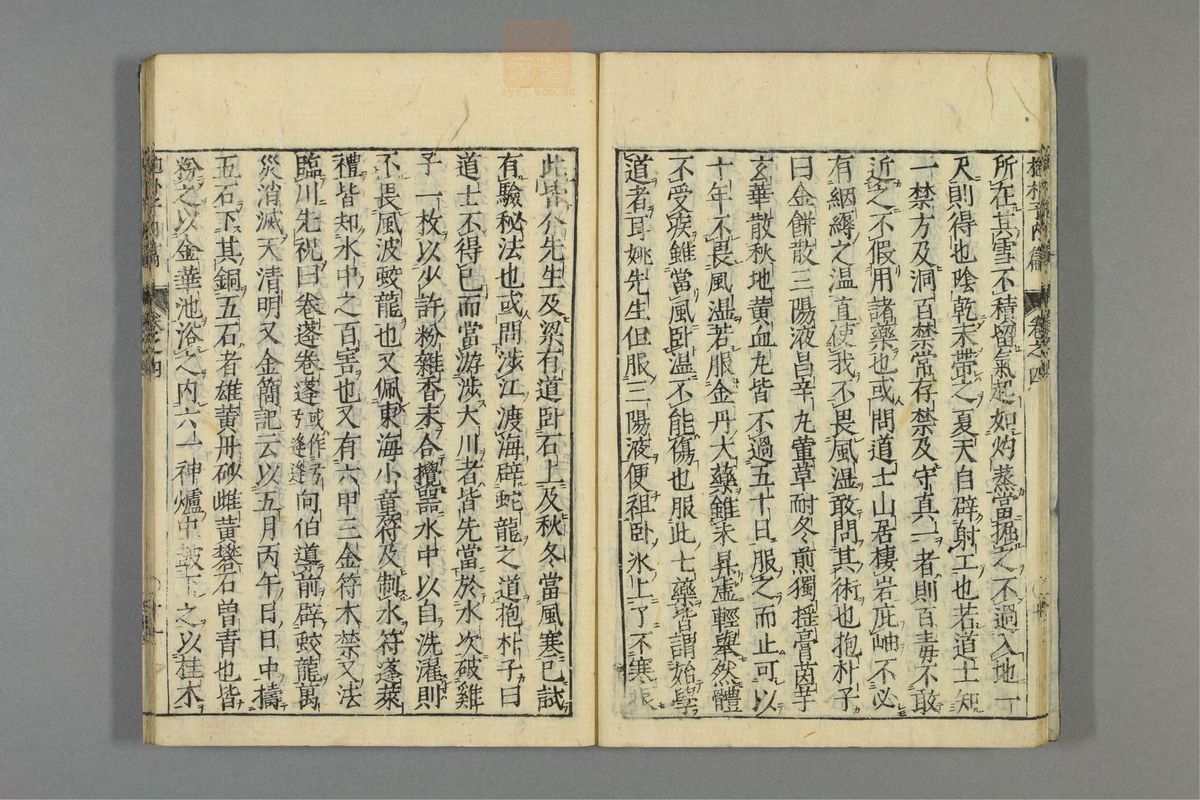 所在其雪不積留氣起如灼蒸當掘之不過入地一
尺則得也陰乾末帶之夏天自辟射工也若道士知
一禁方及洞百禁常存禁及守真一者則百毒不敢
近之不假用諸藥也或問道士山居棲岩庇岫不必
有絪縟之温直使我不畏風湿敢問其術也抱朴子
曰金餅散三陽液昌辛丸葷草耐冬煎獨揺膏茵芋
玄華散秋地黄血丸皆不過五十日服之而止可以
十年不畏風湿若服金丹大藥雖未昇虛輕舉然體
不受疾雖當風卧湿不能傷也服此七藥皆謂始學
道者耳姚先生但服三陽液便袒卧氷上了不寒振
此皆介先生及梁有道卧石上及秋冬當風寒已試
有驗秘法也或問渉江渡海辟蛇龍之道抱朴子曰
道士不得已而當游渉大川者皆先當於水次破雞
子一枚以少許粉雜香末合攪器水中以自洗濯則
不畏風波蛟龍也又佩東海小童符及制水符蓬萊
禮皆却水中之百害也又有六甲三金符木禁又法
臨川先祝曰卷蓬卷蓬或作弓弓逢逢向伯導前辟蛟龍萬
災消滅天清明又金簡記云以五月丙午日日中擣
五石下其銅五石者雄黄丹砂雌黄礬石曽青也皆
粉之以金華池浴之内六一神爐中鼓下之以桂木
抱朴子内篇 卷之四